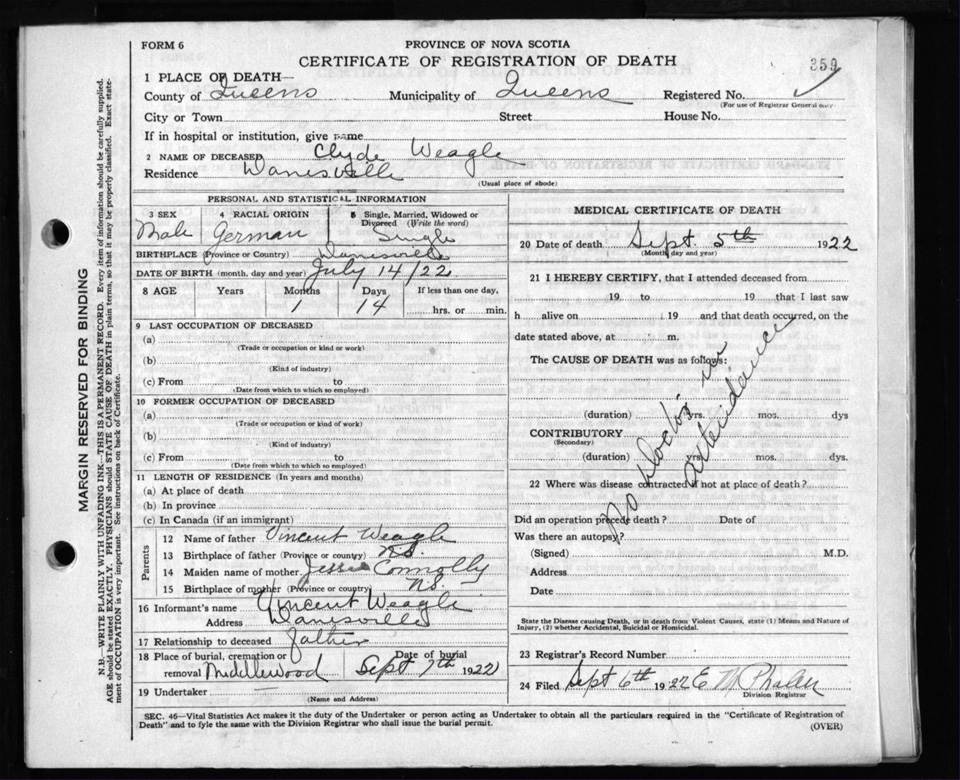 FORM 6
PROVINCE OF NOVA SCOTIA
CERTIFICATE OF REGISTRATION OF DEATH
359
1 PLACE OF DEATH—
County of Queens Municipality of Queens Registered No.
(For use of Registrar General only)
City or Town Street House No.
If in hospital or institution, give name
2 NAME OF DECEASED Clyde Weagle
Residence Danesville
(Usual place of abode)
PERSONAL AND STATISTICAL INFORMATION
3 SEX 4 RACIAL ORIGIN 5 Single, Married, Widowed or Divorced (Write the word)
Male German Single
BIRTHPLACE (Province or Country) Danesville
DATE OF BIRTH (month, day and year) July 14/22
8 AGE Years Months Days If less than one day,
1 14 hrs. or min.
9 LAST OCCUPATION OF DECEASED
(a)
(Trade or occupation or kind or work)
(b)
(Kind of industry)
(c) From to
(Date from which to which so employed)
10 FORMER OCCUPATION OF DECEASED
(a)
(Trade or occupation or kind or work)
(b)
(Kind of industry)
(c) From to
(Date from which to which so employed)
11 LENGTH OF RESIDENCE (In years and months)
(a) At place of death
(b) In province
(c) In Canada (if an immigrant)
Parents
12 Name of father Vincent Weagle
13 Birthplace of father (Province or country) N.S.
14 Maiden name of mother Jessie Connolly
15 Birthplace of mother (Province or country) N.S.
16 Informant's name Vincent Weagle
Address Danesville
17 Relationship to deceased father
18 Place of burial, cremation or removal Middlewood Date of burial Sept 7th 1922
19 Undertaker —
(Name and Address)
MEDICAL CERTIFICATE OF DEATH
20 Date of death Sept. 5th 1922
(Month, day and year)
21 I HEREBY CERTIFY, that I attended deceased from
19 to 19 that I last saw
h alive on , 19 and that death occurred, on the
date stated above, at m.
The CAUSE OF DEATH was as follows:
No Doctor in
attendance
(duration) yrs. mos. dys
CONTRIBUTORY
(Secondary)
(duration) yrs. mos. dys.
22 Where was disease contracted if not at place of death?
Did an operation precede death? Date of
Was there an autopsy?
(Signed) M.D.
Address
Date
State the Disease causing Death, or in death from Violent Causes, state (1) Means and Nature of
Injury, (2) whether Accidental, Suicidal or Homicidal.
23 Registrar's Record Number
24 Filed Sept 6th 1922 E
Division Registrar
SEC. 46—Vital Statistics Act makes it the duty of the Undertaker or person acting as Undertaker to obtain all the particulars required in the "Certificate of Registration of
Death" and to fyle the same with the Division Registrar who shall issue the burial permit.
(OVER)
MARGIN RESERVED FOR BINDING
N.B.—WRITE PLAINLY WITH UNFADING INK—THIS IS A PERMANENT RECORD. Every item of information should be carefully supplied.
AGE should be stated EXACTLY. PHYSICIANS should STATE CAUSE OF DEATH in plain terms, so that it may be properly classified. Exact state-
ment of OCCUPATION is very important. See instructions on back of Certificate.